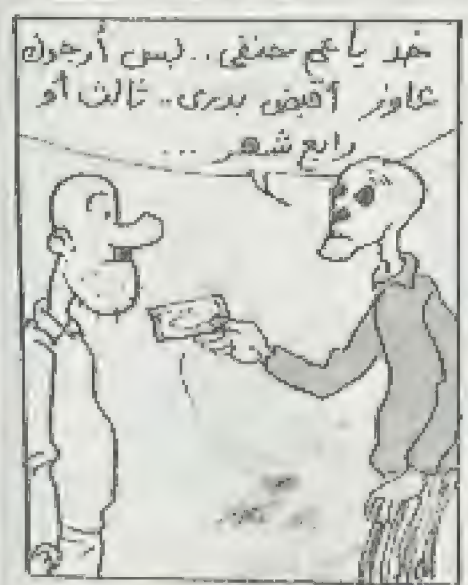 خد يا عم حنفى .. بس أرجوك
عاوز أقبض بدرى .. ثالث أو
رابع شهر ...